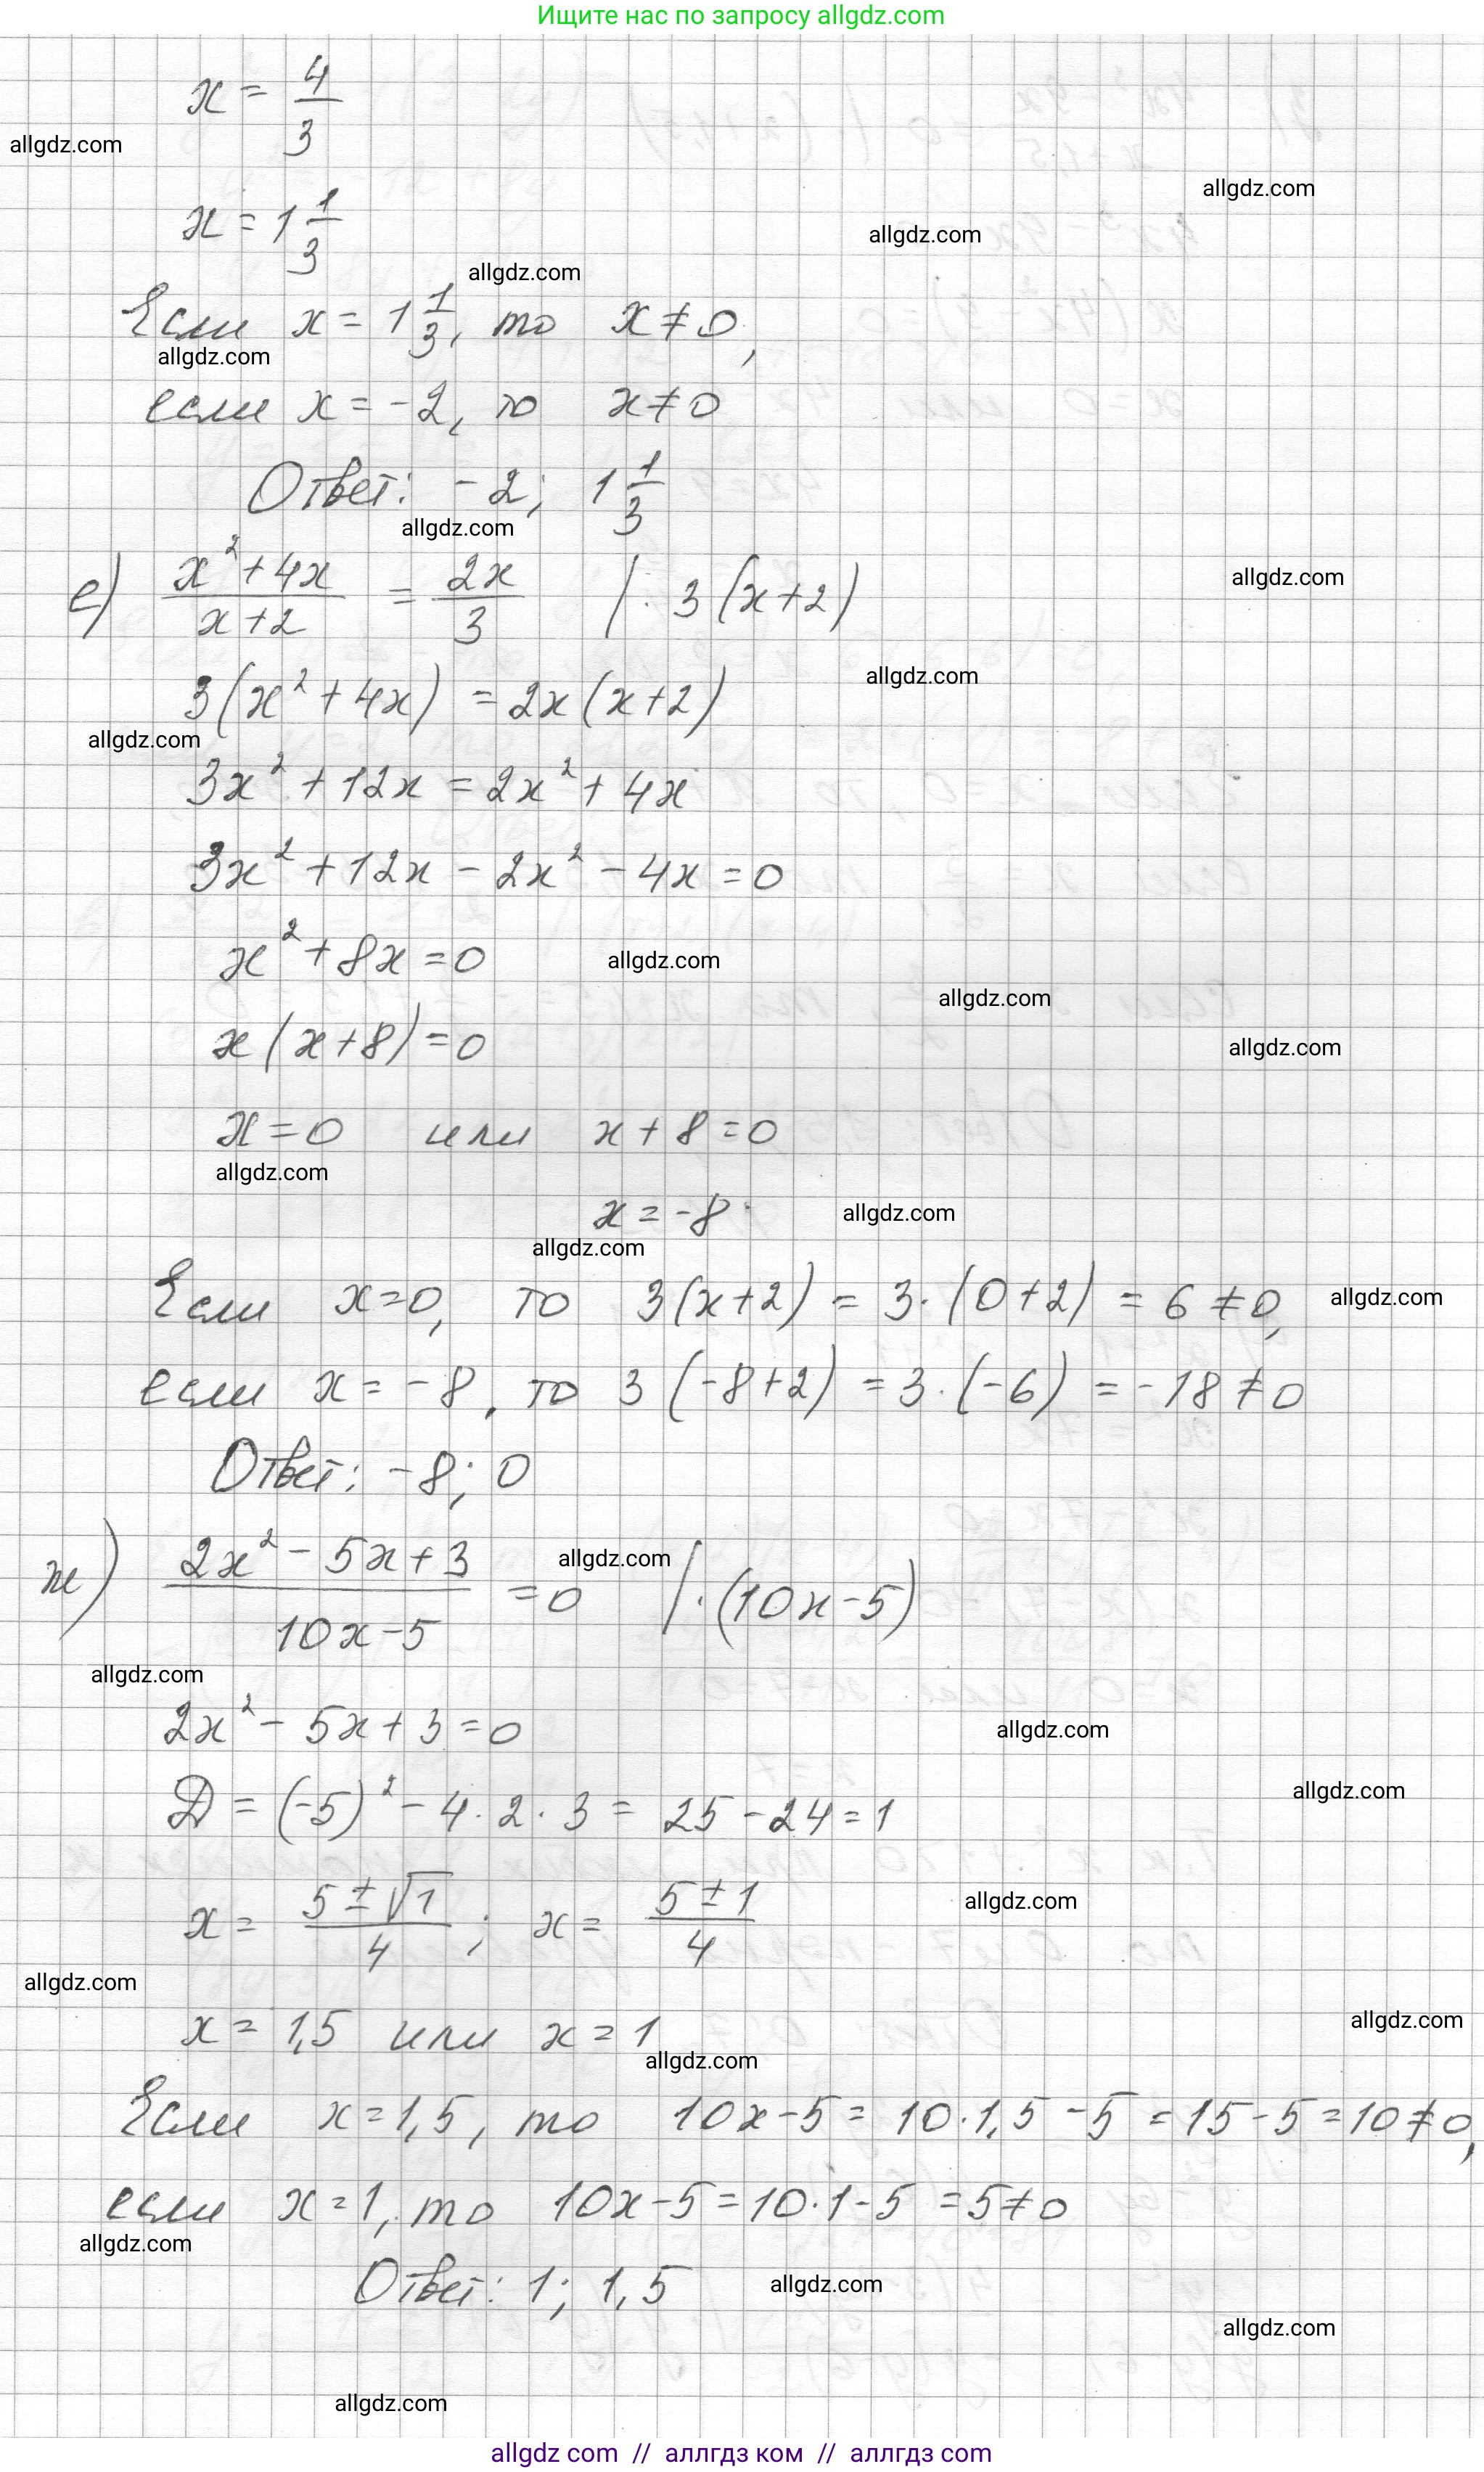 Ищите нас по запросу allgdz.com
x = 4/3
allgdz.com
allgdz.com
x = 1 1/3
allgdz.com
allgdz.com
Если x = 1 1/3, то x ≠ 0,
allgdz.com
если x = -2, то x ≠ 0
Ответ: -2; 1 1/3
allgdz.com
е) (x² + 4x)/(x + 2) = 2x/3 | · 3(x + 2)
allgdz.com
3(x² + 4x) = 2x(x + 2)
allgdz.com
allgdz.com
3x² + 12x = 2x² + 4x
3x² + 12x - 2x² - 4x = 0
x² + 8x = 0
allgdz.com
allgdz.com
x(x + 8) = 0
allgdz.com
x = 0 или x + 8 = 0
allgdz.com
x = -8
allgdz.com
allgdz.com
Если x = 0, то 3(x + 2) = 3 · (0 + 2) = 6 ≠ 0,
allgdz.com
если x = -8, то 3(-8 + 2) = 3 · (-6) = -18 ≠ 0
Ответ: -8; 0
ж) (2x² - 5x + 3)/(10x - 5) = 0 | · (10x - 5)
allgdz.com
allgdz.com
2x² - 5x + 3 = 0
allgdz.com
allgdz.com
D = (-5)² - 4 · 2 · 3 = 25 - 24 = 1
x = (5 ± √1)/4; x = (5 ± 1)/4
allgdz.com
allgdz.com
x = 1,5 или x = 1
allgdz.com
allgdz.com
Если x = 1,5, то 10x - 5 = 10 · 1,5 - 5 = 15 - 5 = 10 ≠ 0,
если x = 1, то 10x - 5 = 10 · 1 - 5 = 5 ≠ 0
allgdz.com
Ответ: 1; 1,5
allgdz.com
allgdz.com
allgdz.com
allgdz com // аллгдз ком // аллгдз com